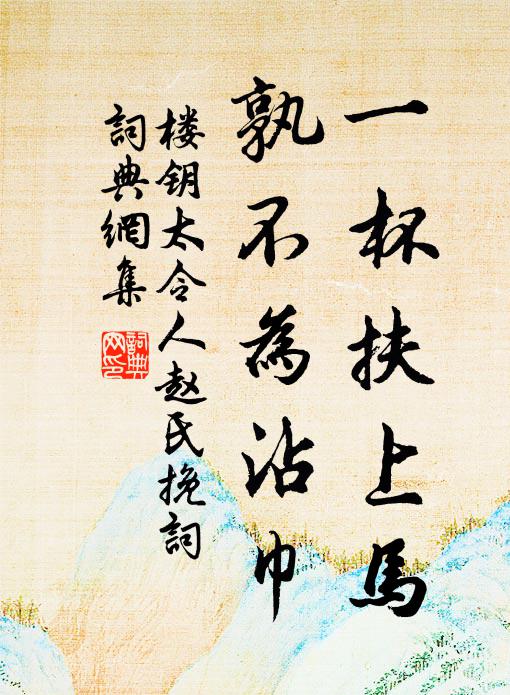 一杯扶上馬
孰不為沾巾
楼钥太令人赵氏挽詞
詞典網集
詞典网印